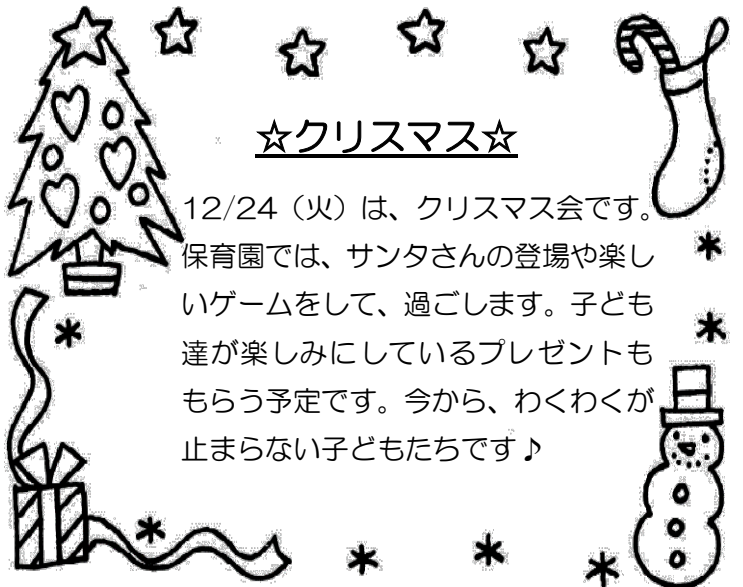 ☆クリスマス☆
12/24（火）は、クリスマス会です。
保育園では、サンタさんの登場や楽し
いゲームをして、過ごします。子ども
達が楽しみにしているプレゼントも
もらう予定です。今から、わくわくが
止まらない子どもたちです♪